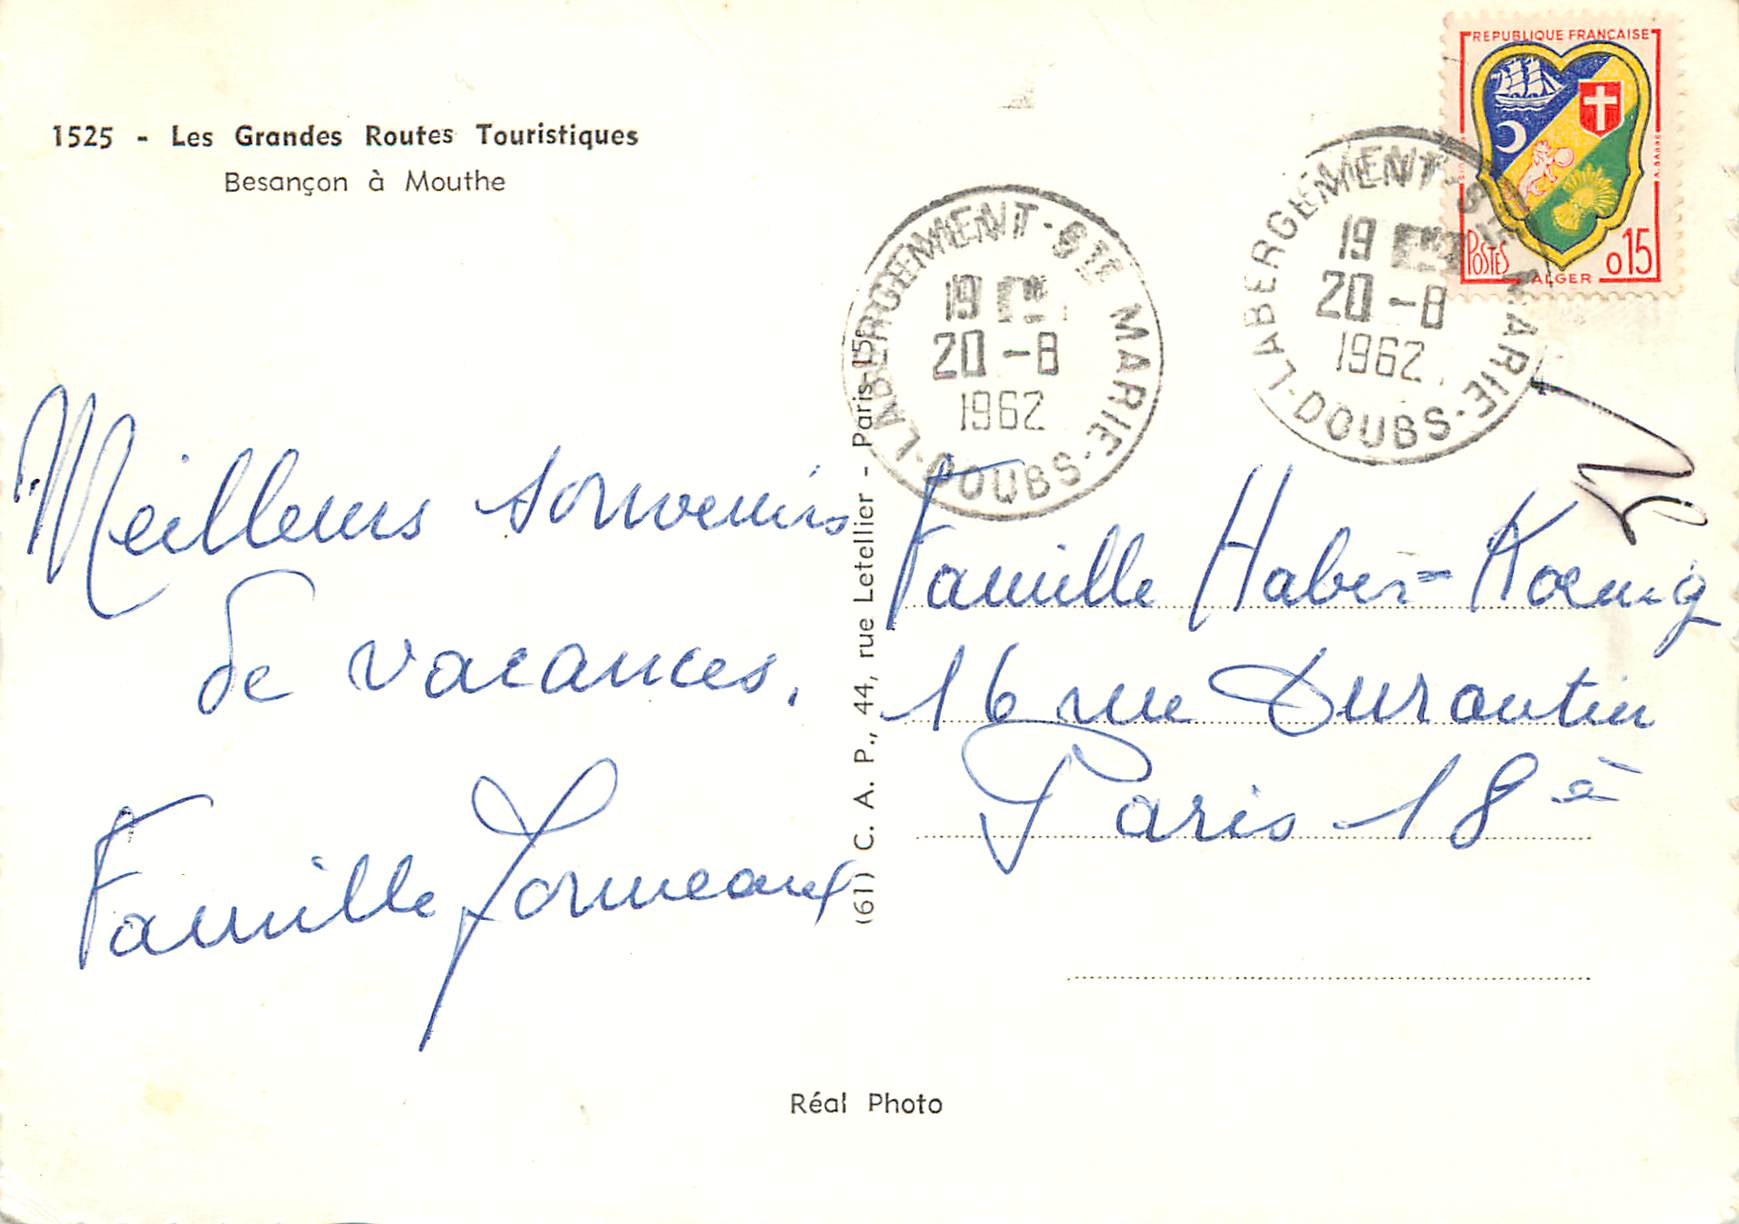 1525 - Les Grandes Routes Touristiques
Besançon à Mouthe
REPUBLIQUE FRANÇAISE
POSTES
ALGER
0,15
LABERGEMENT-STE MARIE
19
20-8
1962
DOUBS
LABERGEMENT-STE MARIE
19
20-8
1962
DOUBS
Meilleurs souvenirs
de vacances.
Famille
(61) C. A. P., 44, rue Letellier - Paris-15e
Famille Haber-Koenig
16 rue Durantin
Paris 18è
Réal Photo